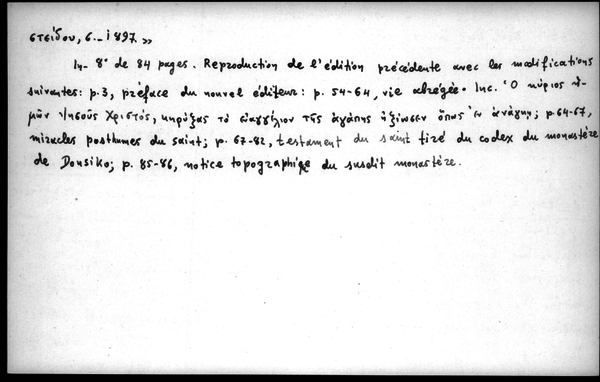 στείδου, 6. – 1897. »
In-8° de 84 pages. Reproduction de l'édition précédente avec les modifications
suivantes: p.3, préface du nouvel éditeur: p. 54-64, vie abrégée. Inc. Ὁ κύριος ἡ-
μῶν Ἰησοῦς Χριστός, κηρύξας τὸ εὐαγγέλιον τῆς ἀγάπης ἠξίωσεν ὅπως ἐν ἀνάγκῃ; p.64-67,
miracles posthumes du saint; p. 67-82, testament du saint tiré du codex du monastère
de Dousiko; p. 85-86, notice topographique du susdit monastère.